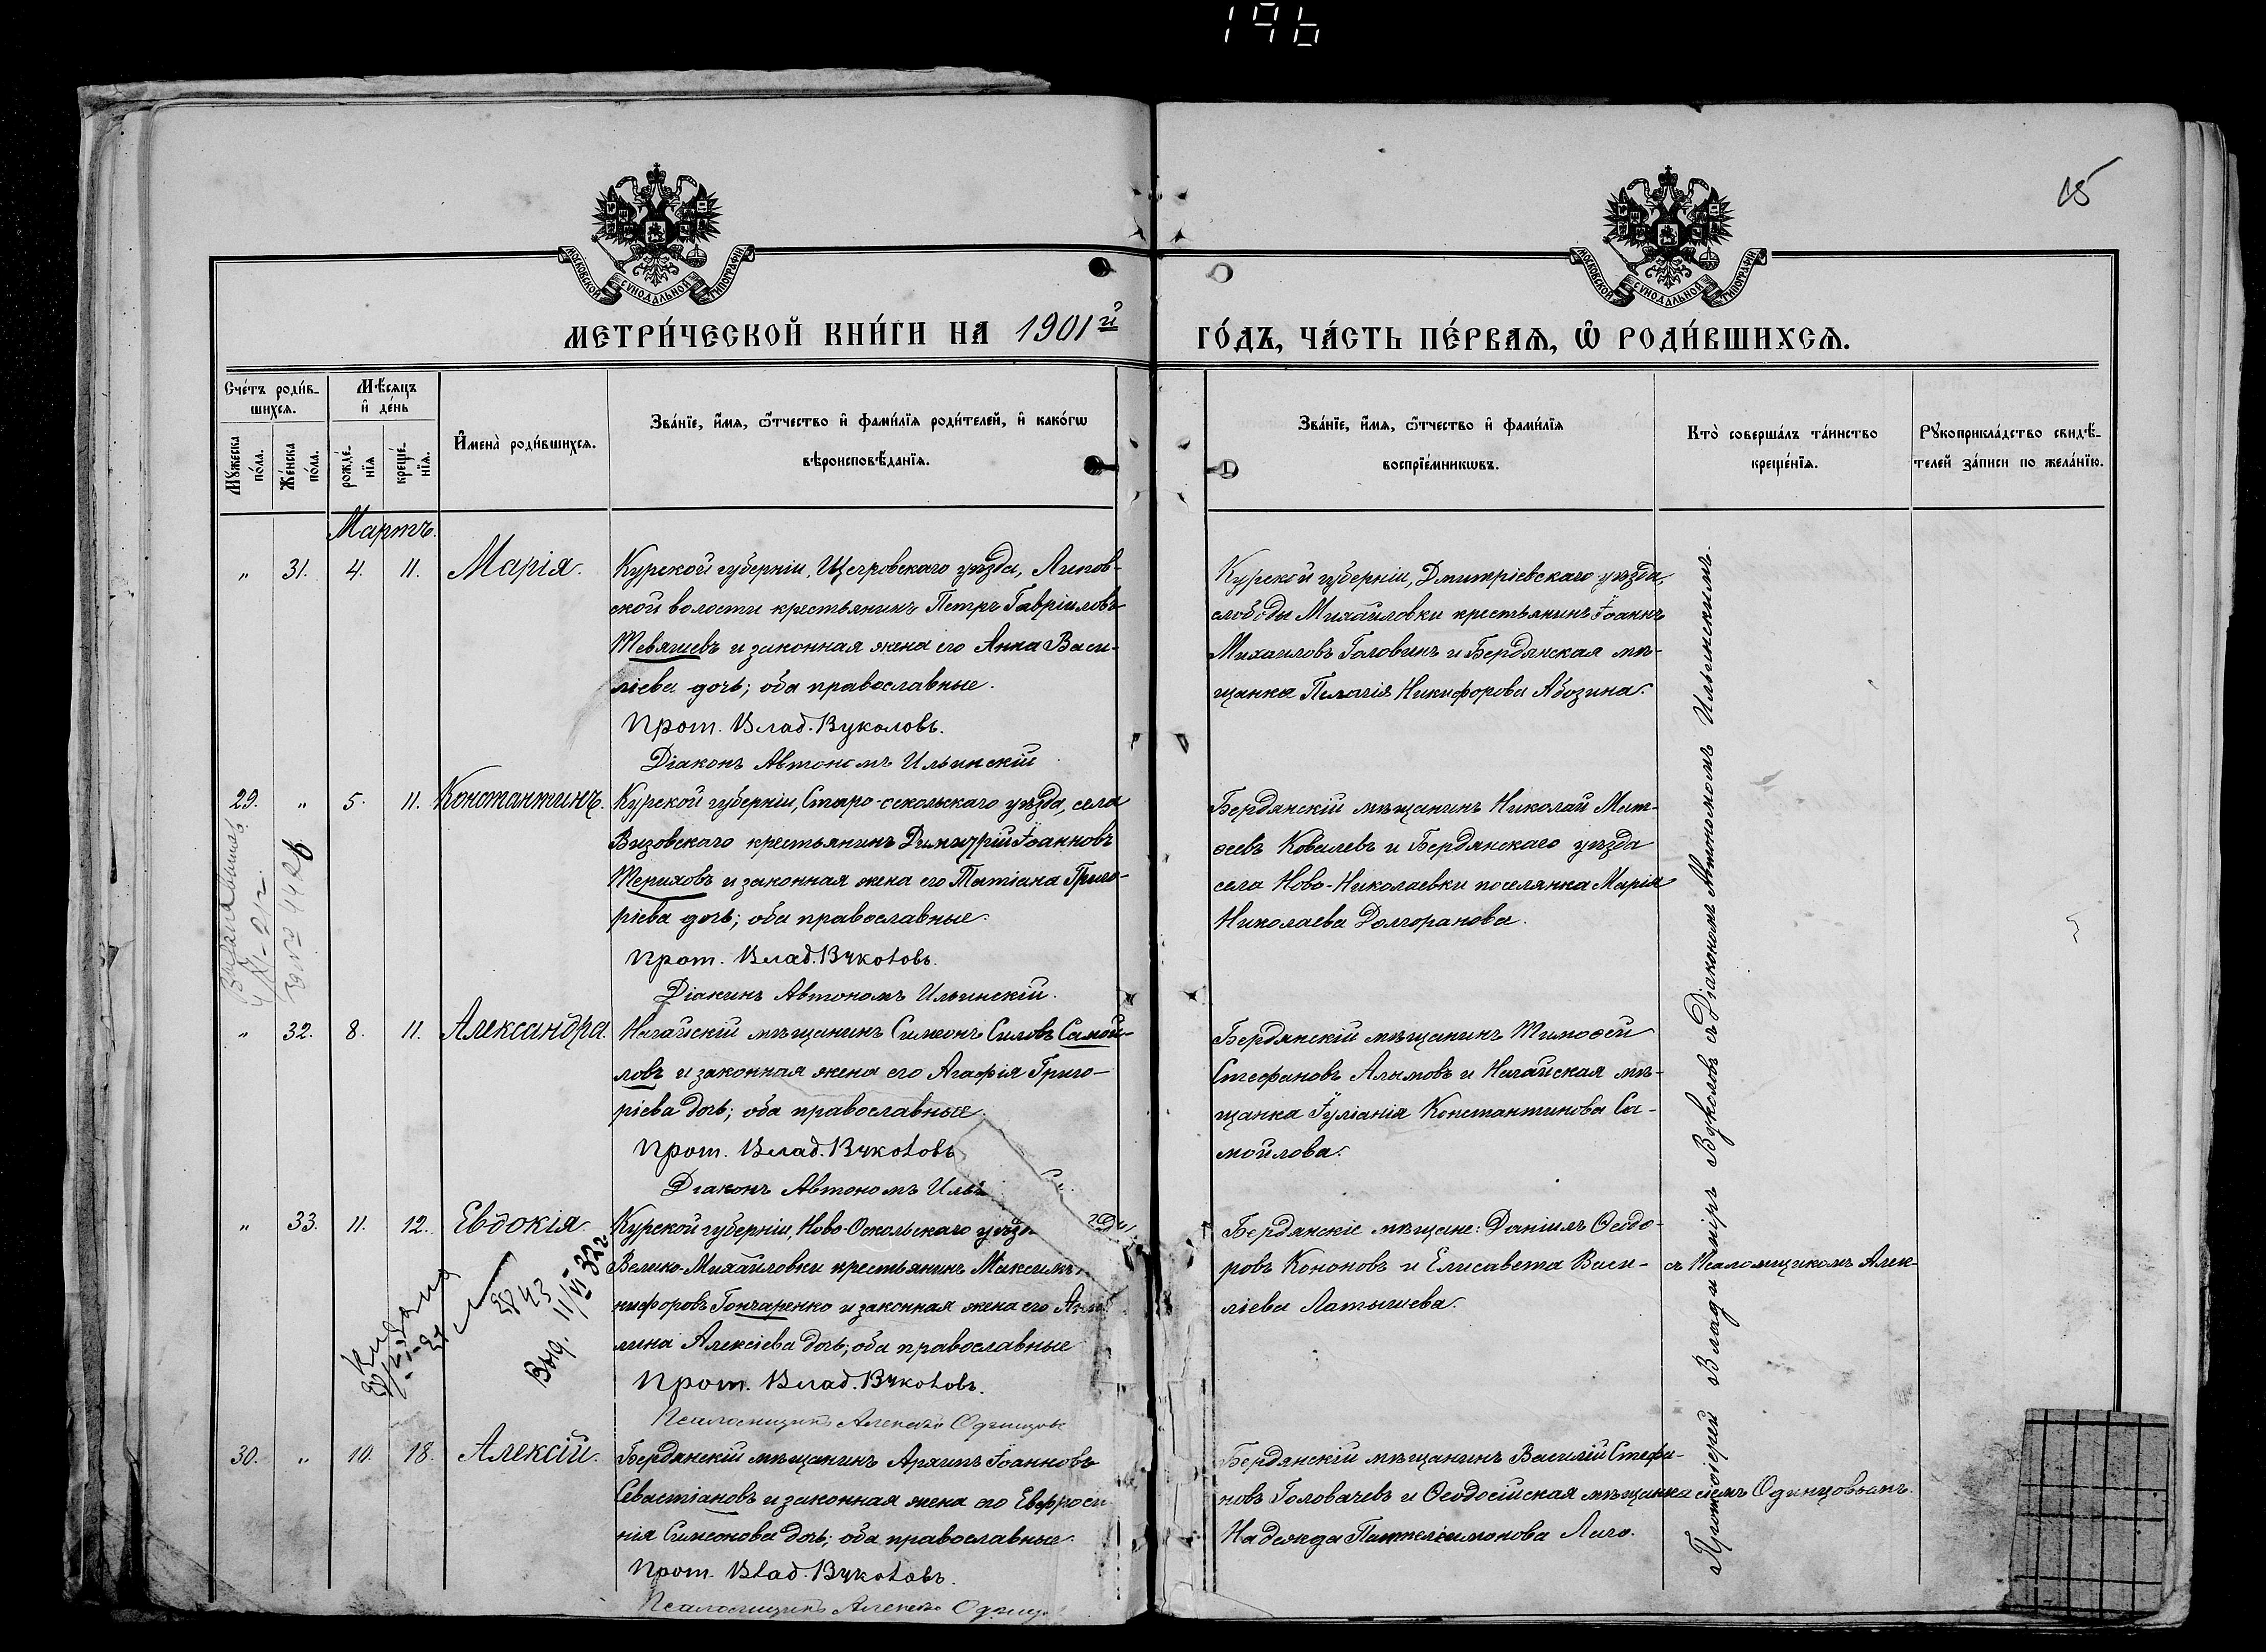 196
15
МОСКОВСКОЙ СУНОДАЛЬНОЙ ТИПОГРАФІИ
МОСКОВСКОЙ СУНОДАЛЬНОЙ ТИПОГРАФІИ
МЕТРИ́ЧЕСКОЙ КНИ́ГИ НА 1901й
ГО́ДЪ, ЧА́СТЬ ПЕ́РВАЯ, Ѡ РОДИ́ВШИХСЯ.
Сче́тъ роди́в-
шихся.
Мѣ́сяцъ
и де́нь
Му́жеска
по́ла.
Же́нска
по́ла.
рожде́-
нїя
креще́-
нїя.
И҆мена̀ роди́вшихся.
Зва́нїе, и҆́мя, ѻ҆́тчество и҆ фами́лїя роди́телей, и҆ како́гѡ
вѣроисповѣ́данїя.
Зва́нїе, и҆́мя, ѻ҆́тчество и҆ фами́лїя
воспрїе́мникѡвъ.
Кто̀ соверша́лъ та́инство
креще́нїя.
Рꙋкоприкла́дство свидѣ́-
телей за́писи по жела́нїю.
Мартъ.
" 31. 4. 11. Марія.
Курской губерніи, Щигровскаго уѣзда, Липов-
ской волости крестьянинъ Петръ Гавріиловъ
Тевяшевъ и законная жена его Анна Васи-
ліева дочь; оба православные.
Прот. Влад. Вуколовъ.
Діаконъ Автономъ Ильинскій
Курской губерніи, Дмитріевскаго уѣзда,
слободы Михайловки крестьянинъ Іоаннъ
Михаиловъ Головинъ и Бердянская мѣ-
щанка Пелагія Никифорова Абозина.
29. " 5. 11. Константинъ.
Курской губерніи, Старо-оскольскаго уѣзда, села
Визовскаго крестьянинъ Димитрій Іоанновъ
Териховъ и законная жена его Татіана Григо-
ріева дочь; оба православные.
Прот. Влад. Вуколовъ.
Діаконъ Автономъ Ильинскій.
Бердянскій мѣщанинъ Николай Мат-
ѳеевъ Ковалевъ и Бердянскаго уѣзда
села Ново-Николаевки поселянка Марія
Николаева Долгоранова.
" 32. 8. 11. Александра.
Ногайскій мѣщанинъ Симеонъ Силовъ Самой-
ловъ и законная жена его Агафія Григо-
ріева дочь; оба православные.
Прот. Влад. Вуколовъ
Діаконъ Автономъ Ильи
Бердянскій мѣщанинъ Тимоѳей
Стефановъ Алымовъ и Ногайская мѣ-
щанка Іуліанія Константинова Са-
мойлова.
" 33. 11. 12. Евдокія.
Курской губерніи, Ново-Оскольскаго уѣзда
Велико-Михайловки крестьянинъ Максимъ
кифоровъ Гончаренко и законная жена его
лина Алексіева дочь; оба православные
Прот. Влад. Вуколовъ.
Псаломщикъ Алексѣй Одинцовъ
Бердянскіе мѣщане: Даніилъ Ѳеодо-
ровъ Кононовъ и Елисавета Васи-
ліева Латышева.
30. " 10. 18. Алексій.
Бердянскій мѣщанинъ Архипъ Іоанновъ
Севастіановъ и законная жена его Евфроси
нія Симеонова дочь; оба православные.
Прот. Влад. Вуколовъ.
Псаломщикъ Алексѣй Одинц
Бердянскій мѣщанинъ Василій Стефа-
новъ Головачевъ и Ѳеодосійская мѣщанка
Надежда Пантелеимонова Лаго.
Протоіерей Владиміръ Вуколовъ съ Діакономъ Автономомъ Ильинскимъ.
съ Псаломщикомъ Алек-
сіемъ Одинцовымъ.